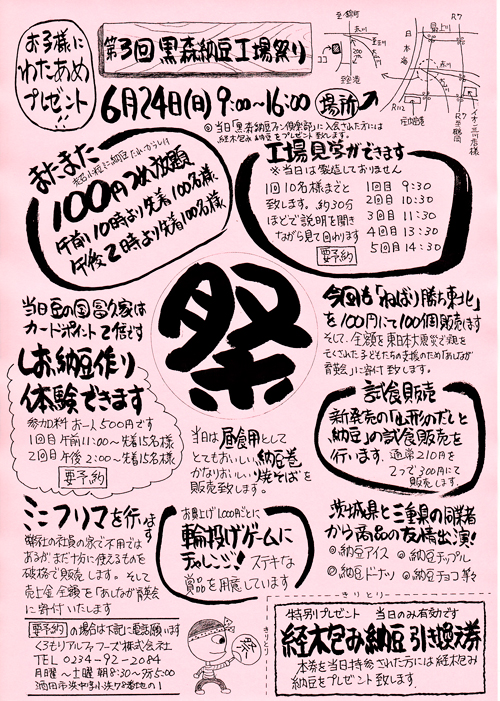 お子様に
わたあめ
プレゼント!!
第3回 黒森納豆工場祭り
6月24日(日) 9:00〜16:00 場所
◎当日「黒森納豆ファン倶楽部」に入会された方には
経木包み納豆をプレゼント致します。
最上川
日本海
赤川
R7
R112
ココ
またまた
100円つめ放題
午前10時より先着100名様
午後2時より先着100名様
工場見学ができます
※当日は製造しておりません
1回10名様まとと
致します。約30分
ほどで説明を聞き
ながら見て回ります
要予約
1回目 9:30
2回目 10:30
3回目 11:30
4回目 13:30
5回目 14:30
祭
当日豆の国 富久家は
カードポイント2倍です
納豆作り
体験できます
参加料 お一人500円です
1回目 午前11:00〜先着15名様
2回目 午後2:00〜先着15名様
要予約
今回も「ねばり勝ち東北」
を100円にて100個販売します
そして、全額を東日本大震災で親を
亡くされた子どもたちの支援のため「あしなが
育英会」に寄付致します。
試食販売
新発売の「山形のだしと
納豆」の試食販売を
行います。通常210円を
2つで300円にて
販売します。
当日は昼食用として
とてもおいしい納豆巻
かなりおいしい焼そばを
販売致します。
ミニフリマを行います
弊社の社員の家で不用では
あるがまだ十分に使えるものを
破格で販売します。そして
売上金全額を「あしなが育英会」
に寄付いたします
お買上げ1,000円ごとに
輪投げゲームに
チャレンジ!ステキな
賞品を用意しています
茨城県と三重県の同業者
から商品の友情出演!
◎納豆アイス ◎納豆チップル
◎納豆ドーナツ ◎納豆チョコ等々
要予約の場合は下記に電話願います
くろもりアルファフーズ株式会社
TEL 0234-92-2084
月曜〜土曜 朝8:30〜夕5:00
酒田市浜中字小浜78番地の1
祭
きりとり
きりとり
特別プレゼント 当日のみ有効です
経木包み納豆 引き換え券
本券を当日持参された方には経木包み
納豆をプレゼント致します。